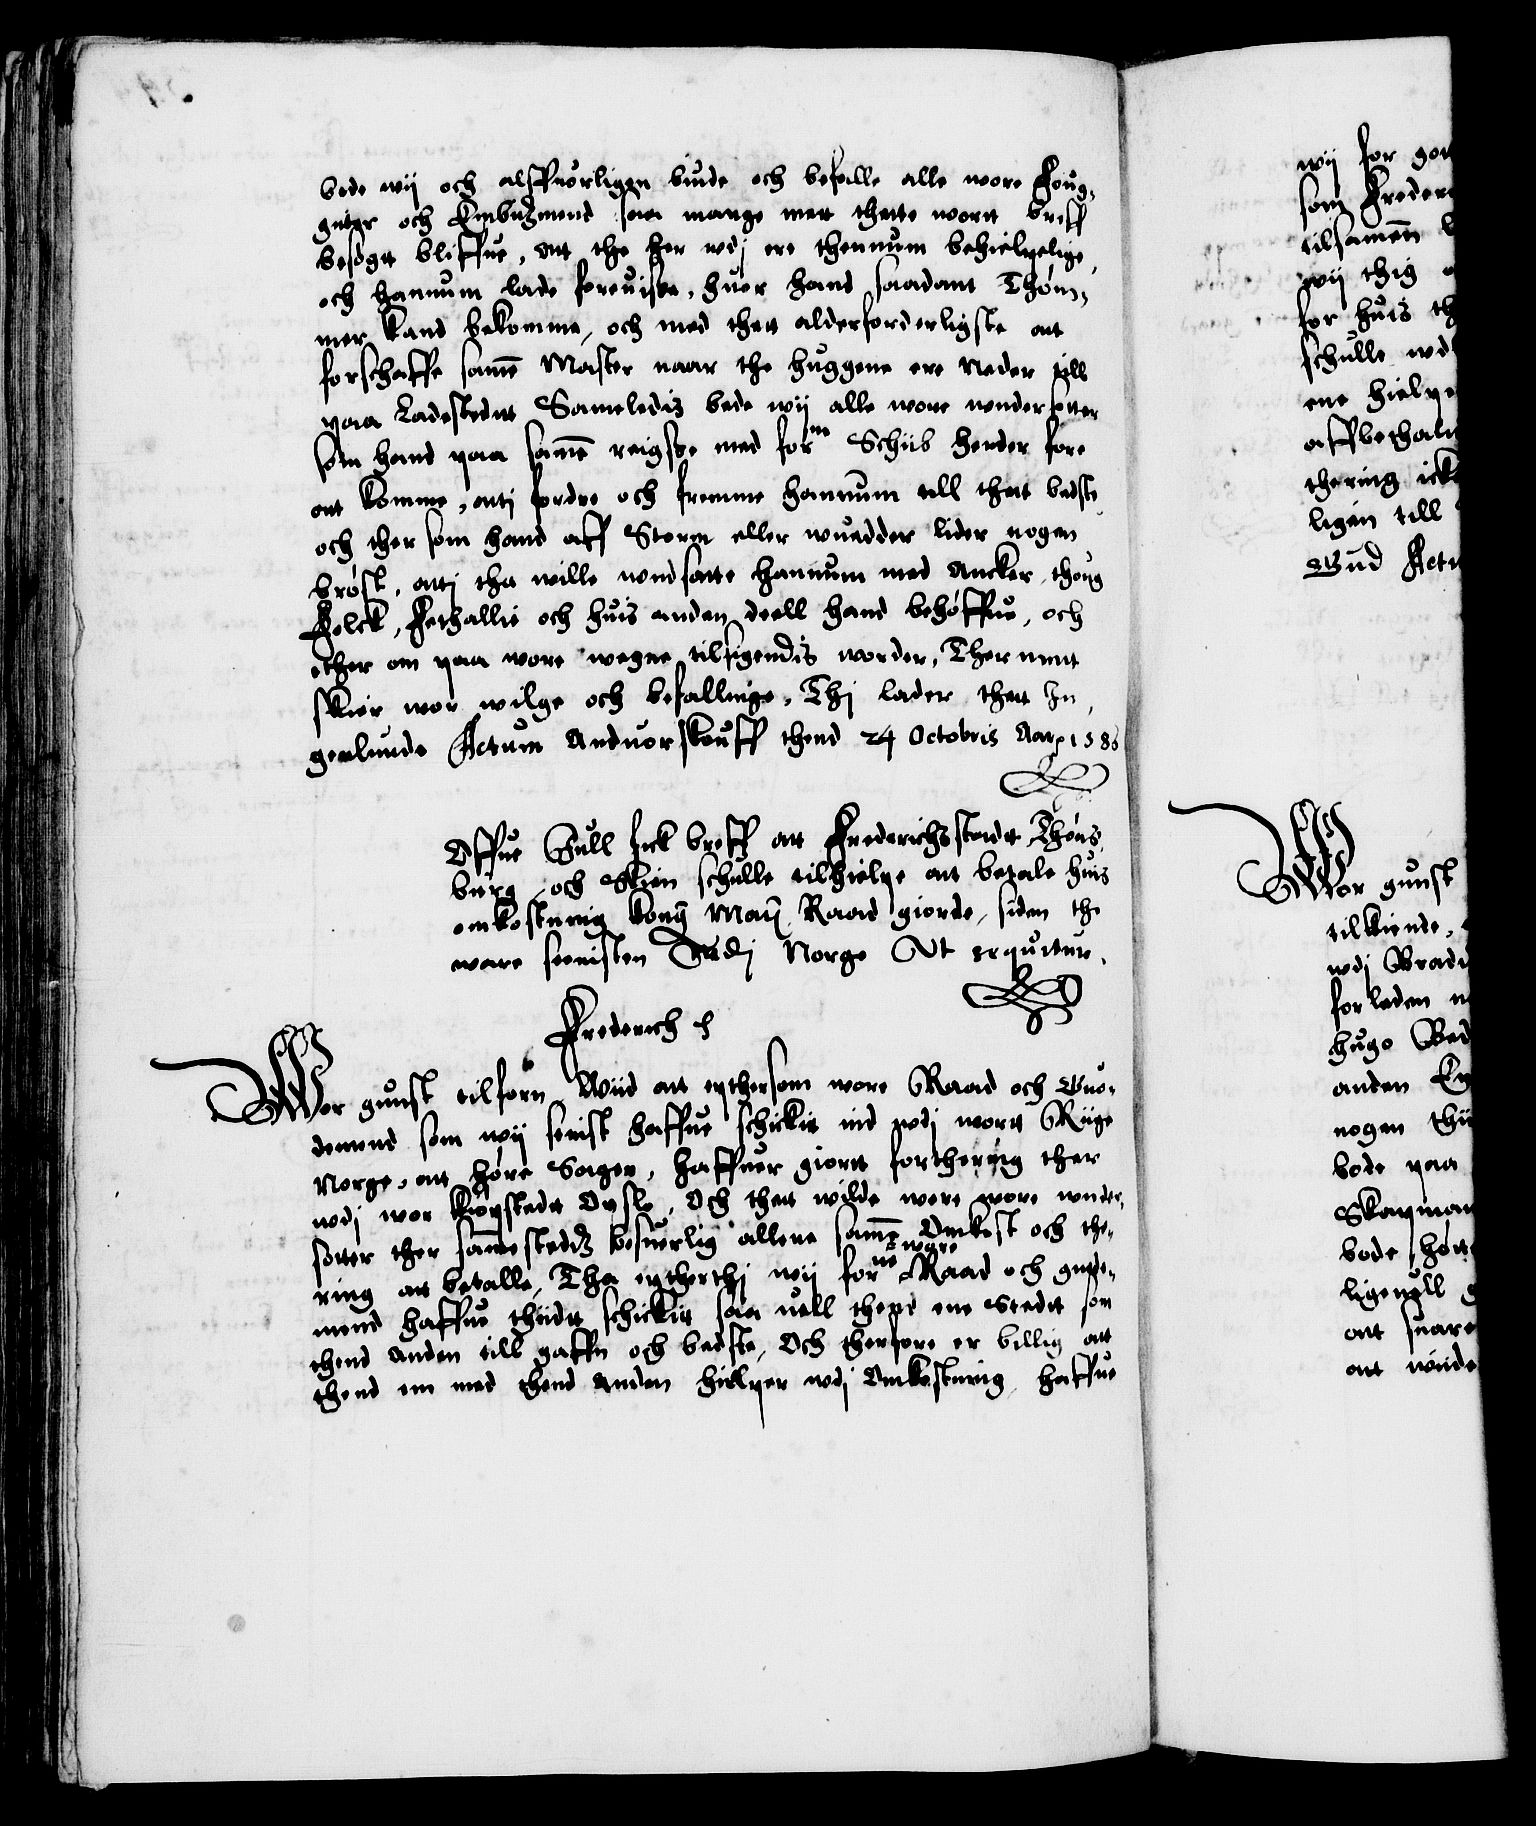 bede wij och alffuorligen biude och befalle alle wore Foug-
guter och Embitzmend saa mange mett thette wortt breff
besøgtt bliffue, att the her wdj ere thennum behielpelige,
och hannum lade foreuiske, huor hand saadant Thøm-
mer kand bekomme, och med thett alderforderligste att
forschaffe samē Master naar the huggene ere Neder till
paa Ladestedtt Sameledis bede wij alle wore wndersotter
som hand paa samē reigsse med forne Schib hender fore
att komme, atti fordre och fremme hannum till thett bedste
och ther som hand aff Storm eller wuedder lider nogen
brøst, atti tha wille wndsette hannum med Ancker, thoug
Folck, Fethallie och huis anden deell hand behøffue, och
ether om paa wore wegne tilsigendis worder, Ther mett
skier wor wilge och befallinge, Thj lader thett In-
genlunde Actum Anduorskouff thend 24 Octobris Aar 1586

Offue Jull fick breff att Frederichsstadt Thøns-
burg, och Skien schulle tilhielpe att betale huis
omkostning kong Maij Raad giorde, siden the
ware seenisten Indj Norge Ut sequitur.

Frederich

Wor gunst tilforn, Wiid att epthersom wore Raad och Guo-
demend som wij senist haffue schickit ind wdj wortt Riige
Norge, att høre Sager, haffuer giortt forthering ther
wdj wor Kiøpstedt Opslo, Och thett wilde were wore wnder-
sotter ther samestedtz besuerlig allene samē Omkost och the-
ring att betalle, Tha eptherthj wij forne wore Raad och gode-
mend haffue thiidtt schickit saa uell thend ene Stedtt som
thend Anden till gaffn och bedste, Och therfore er billig att
thend en med thend Anden hielper wdj Omkostning, haffue

wij for go
som Freder
tilsamenn
wij thig
for huis th
schulle wd
ene hielpe
affbethal
thering ick
ligen till
Gud Actu

Wor gunst
tilkiende,
wdj
forleden
hugo
anden
nogen
bode paa
Skapman
bode hør
ligeuell
att suare
att wiide